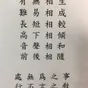 有無相生
難易相成
長短相較
高下相傾
音聲相和
前後相隨
處無為之事
行不